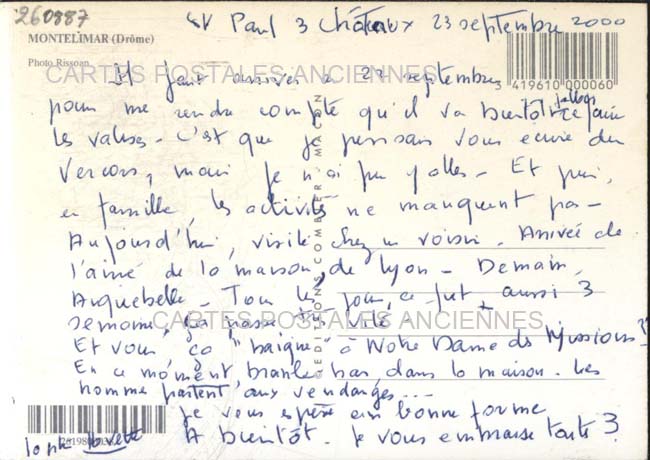 260887
St Paul 3 Châteaux 23 septembre 2000
MONTELIMAR (Drôme)
Photo Rissoan
3 419610 000060
CARTES POSTALES ANCIENNES
Il faut arriver à 23 septembre
pour me rendre compte qu'il va bientôt falloir faire
les valises - C'est que je pensais vous écrire du
Vercors, mais je n'ai pu y aller - Et puis,
en famille, les activités ne manquent pas -
Aujourd'hui, visite chez un voisin. Arrivée de
l'ainé de la maison de Lyon - Demain,
Aiguebelle - Tous les jours, ce fut aussi 3
semaines, ça passe très vite.
CARTES POSTALES ANCIENNES
Et vous ça "baigne" à Notre Dame des Missions ?
En ce moment branle bas dans la maison. Les
homme partent aux vendanges...
Je vous espère en bonne forme
A bientôt. Je vous embrasse toute 3
EDITIONS COMBIER MACON